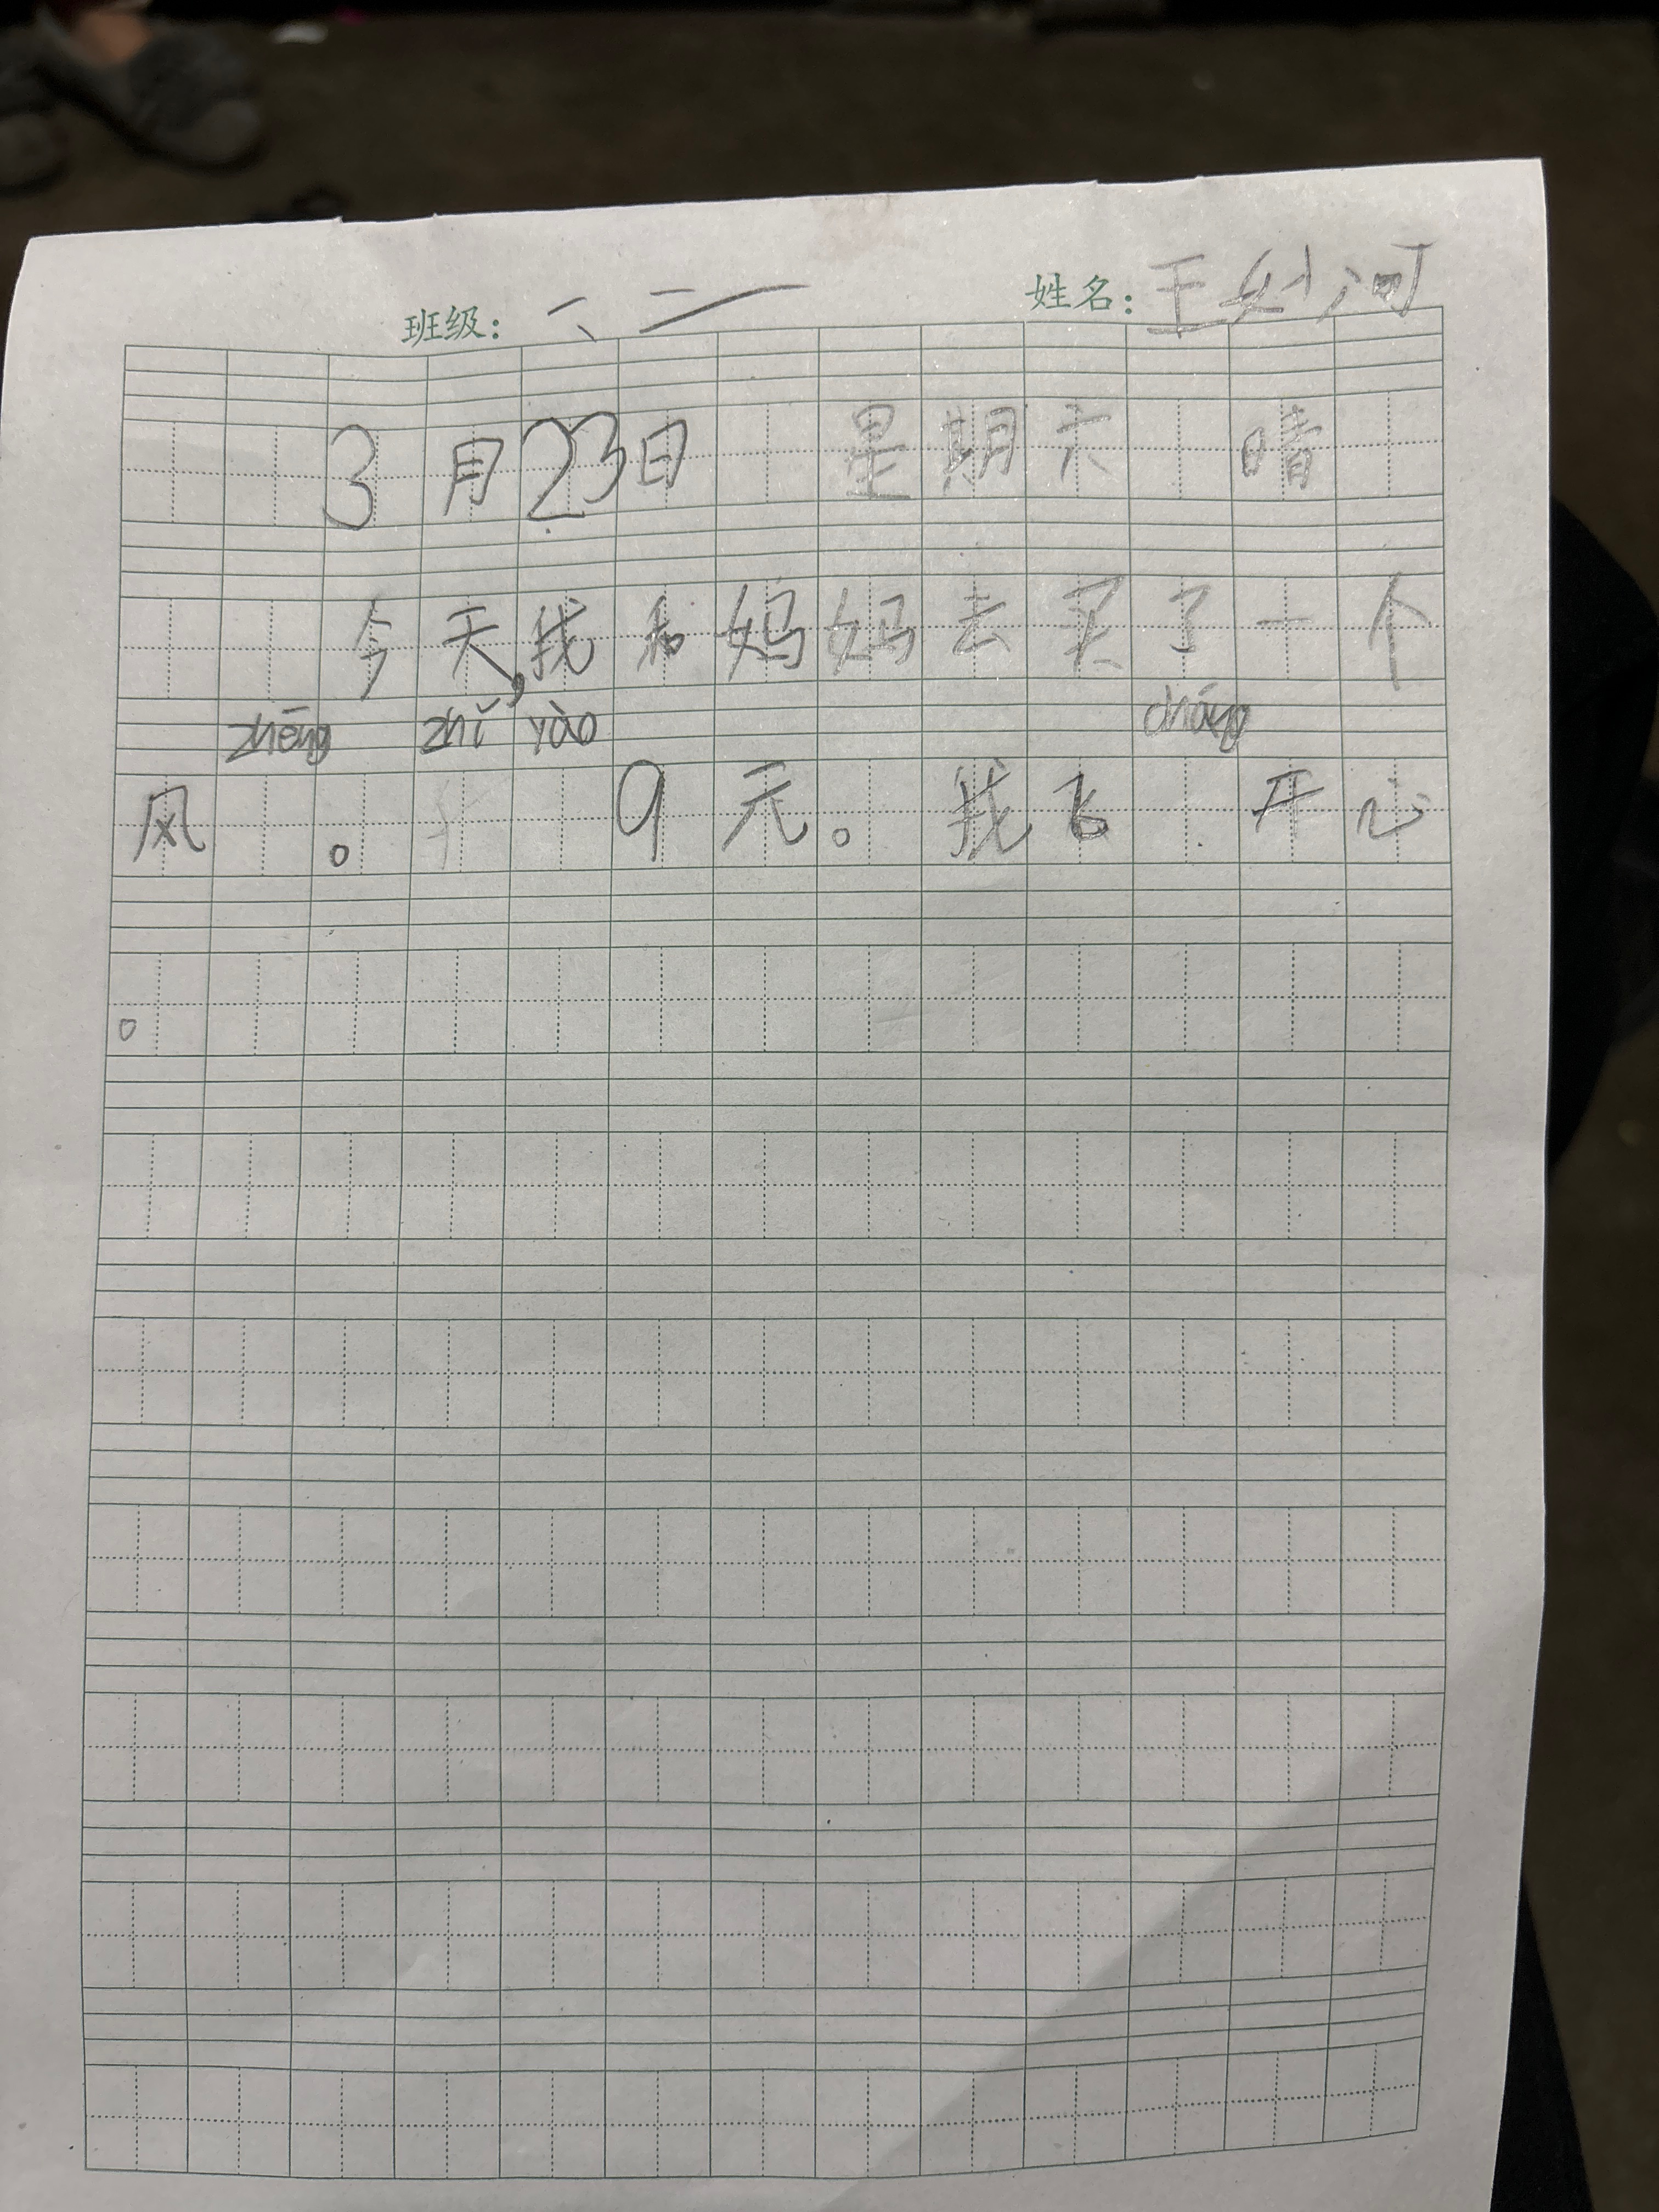 班级：一、二 姓名：王妙河
3月23日 星期六 晴
今天，我和妈妈去买了一个
风zhēng。zhǐ yào 9元。我飞cháng开心
。